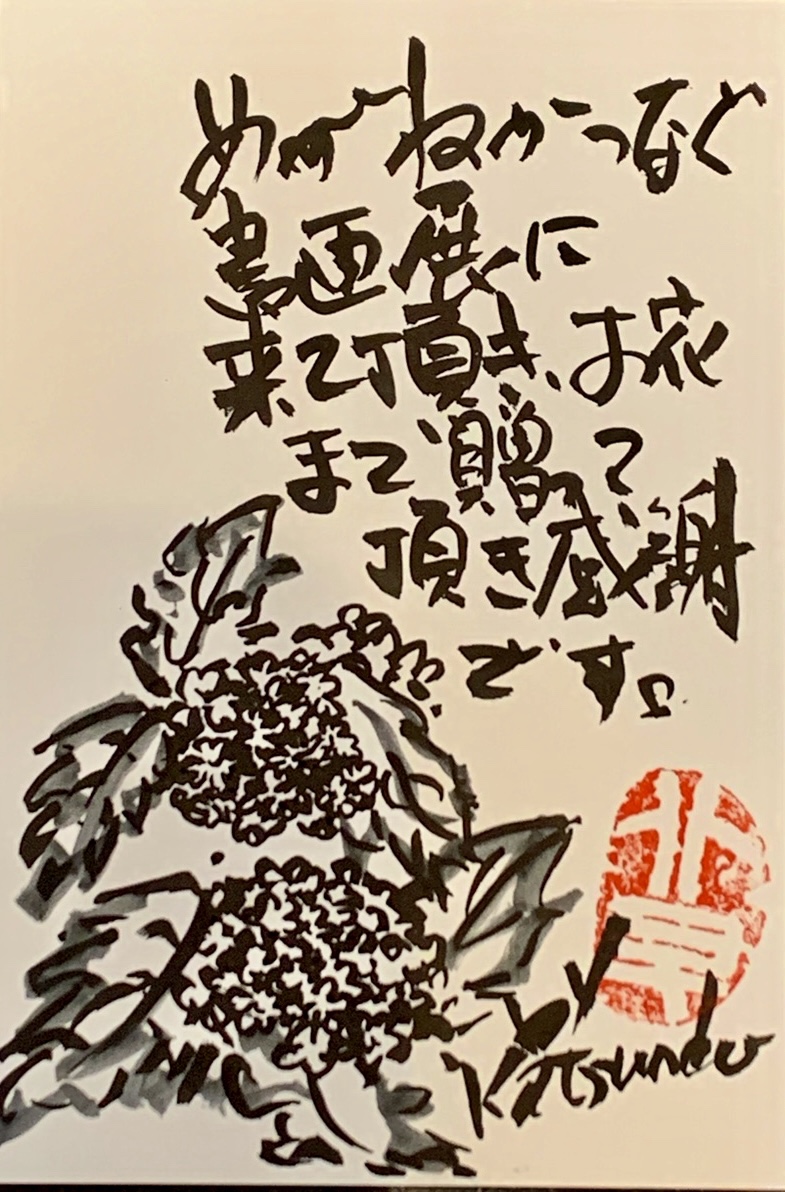 めがねかつなど
書画展に
来て頂き、お花
まで贈って
頂き感謝
です。
by
Katsundo